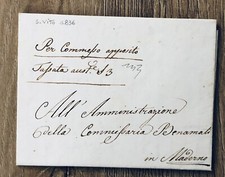 S. VITO 1836
Per Commesso apposito
Tassata aust. £ 3
All' Amministrazione
della Commissaria Bonamali
in Maderno